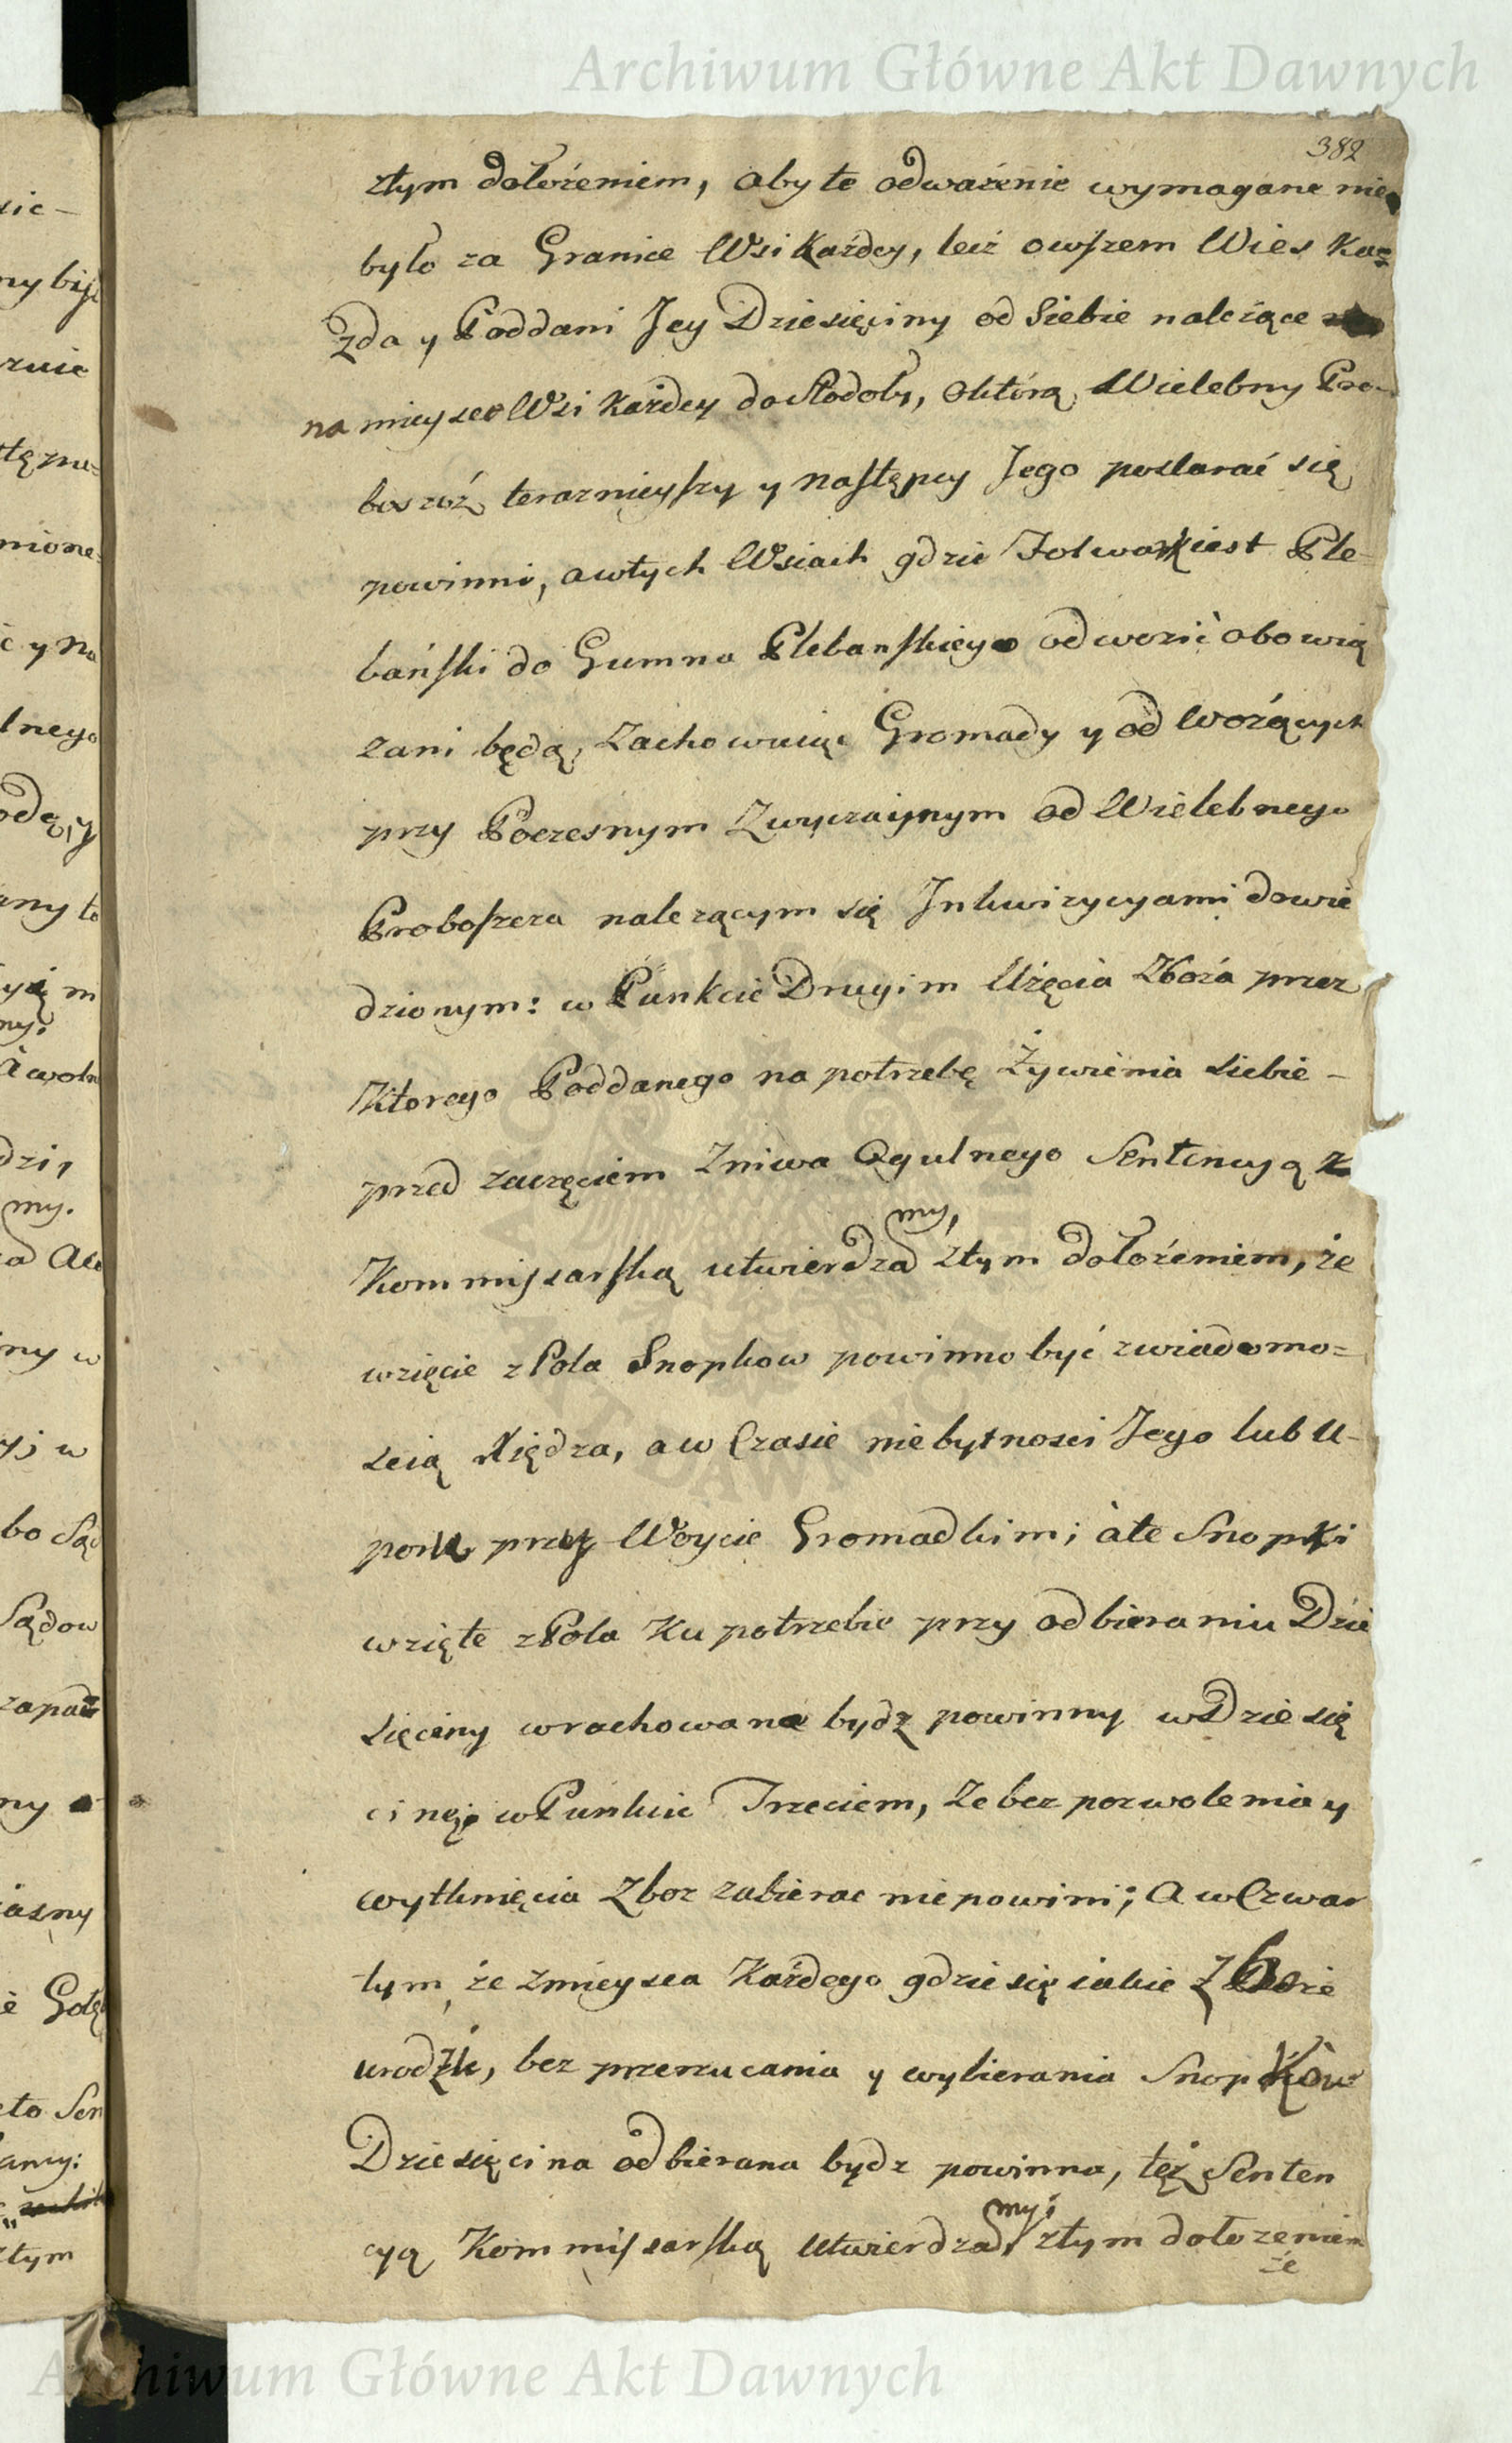 Archiwum Główne Akt Dawnych
382
złym dołożeniem, aby te odważenie wymagane nie
było za Granice Wsi Każdey, lecz owszem Wies Ka=
żda y Poddani Jey Dziesięciny od Siebie należące
na mieysce Wsi Każdey do Stodoły, o którą Wielebny Pro-
boszcz teraznieyszy y następcy Jego postarać się
powinni, a wtych Wsiach gdzie Folwark iest Ple-
bański do Gumna Plebanskiego odwozić obowią
zani będą, zachowuiąc Gromady y odwożących
przy Poczesnym Zwyczaynym od Wielebnego
Proboszcza należącym się Inkwizycyami dowie
dzionym: w Punkcie Drugim Użęcia Zboża przez
Ktorego Poddanego na potrzebę Żywienia siebie -
przed zaczęciem Zniwa Ogulnego Sentencyą
my,
Kommissarską utwierdza ztym dołożeniem, że
wzięcie z Pola Snopkow powinno być zwiadomo=
scią Xiędza, a w Czasie niebytnosci Jego lub U-
poru przy Woycie Gromadkim; à te Snopki
wzięte z Pola Ku potrzebie przy odbieraniu Dzie
sięciny wrachowane bydz powinny w Dziesię
cinę; w Punkcie Trzeciem, Ze bez pozwolenia y
wytknięcia Zboz zabierac niepowinni; A w Czwar
tym, że zmieysca Każdego gdzie się iakie Zboże
urodzi, bez przerzucania y wybierania Snopków
Dziesięcina odbierana bydz powinna, też Senten
my;
cyą Kommissarską Utwierdza ztym dołozeniem
że
Archiwum Główne Akt Dawnych